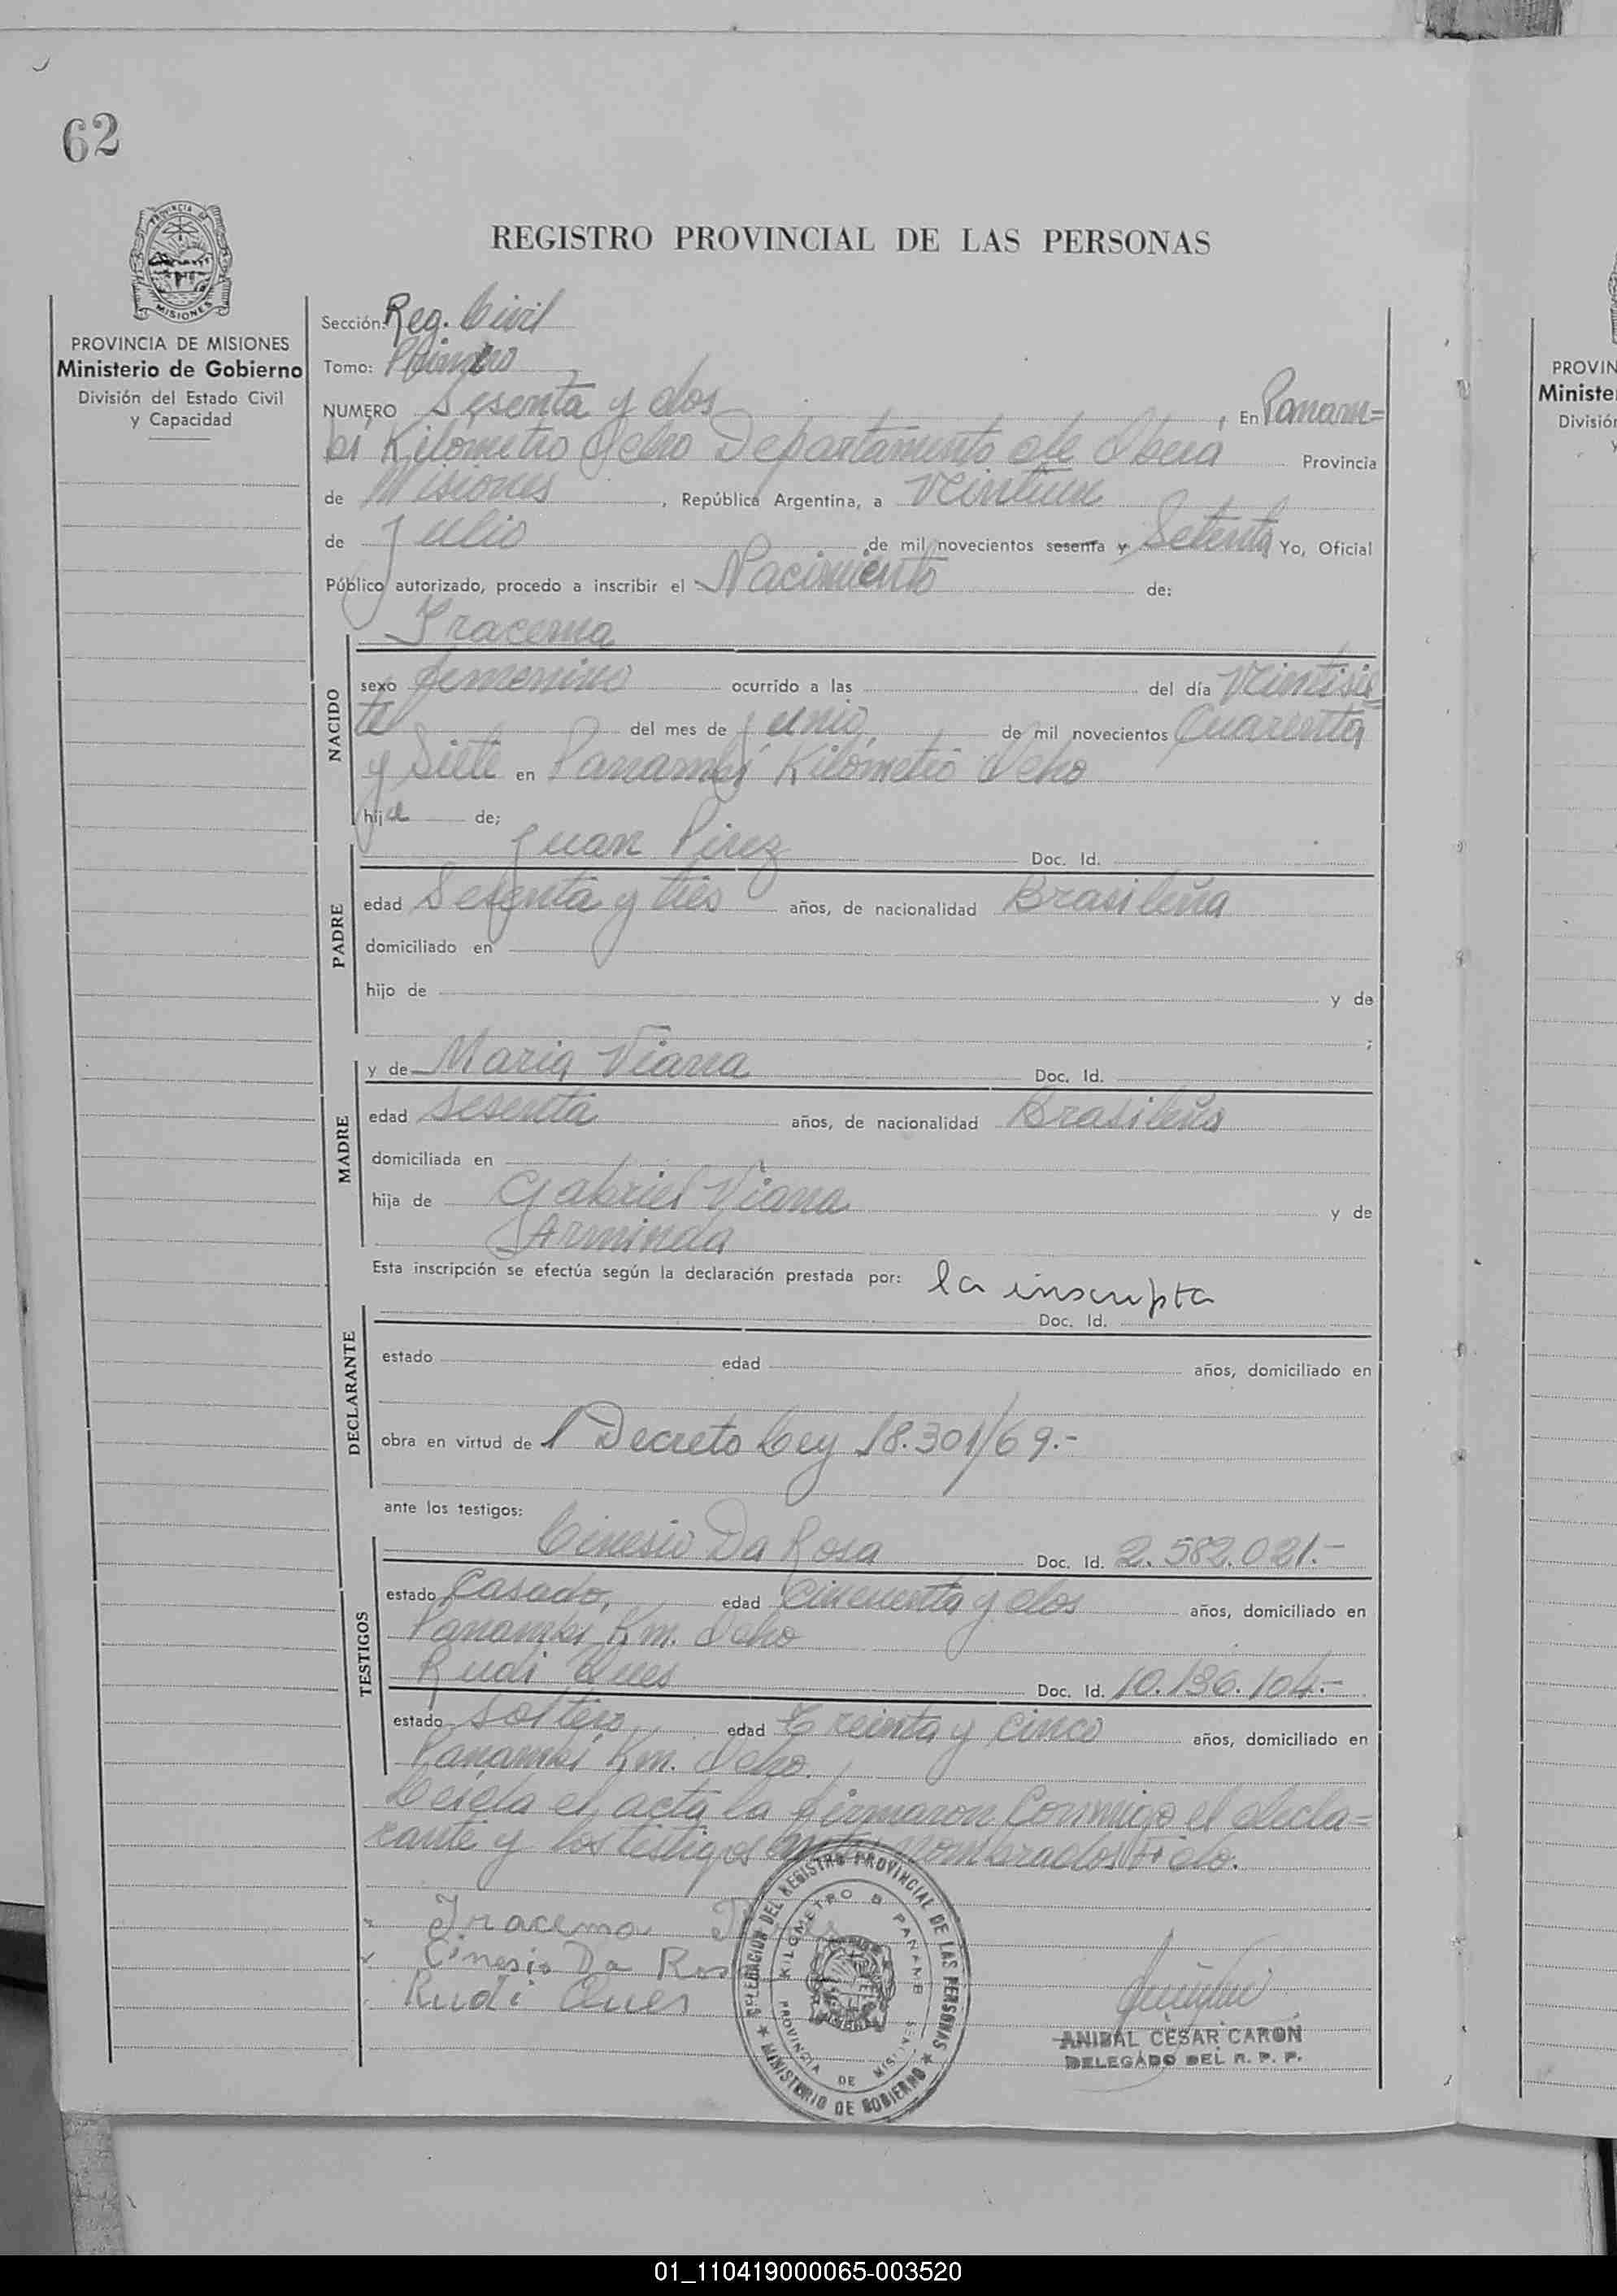 62
REGISTRO PROVINCIAL DE LAS PERSONAS
PROVINCIA DE MISIONES
MISIONES
PROVINCIA DE MISIONES
Ministerio de Gobierno
División del Estado Civil
y Capacidad
Sección: Reg. Civil
Tomo: Primero
NUMERO Sesenta y dos, En Panam=
bí Kilómetro Ocho Departamento de Oberá Provincia
de Misiones, República Argentina, a veintiun
de Julio de mil novecientos sesenta y Setenta Yo, Oficial
Público autorizado, procedo a inscribir el Nacimiento de:
NACIDO
Iracema
sexo femenino ocurrido a las del día Veintisie
te del mes de Junio, de mil novecientos Cuarenta
y Siete en Panambí Kilómetro Ocho
hija de;
PADRE
Juan Pirez Doc. Id.
edad Sesenta y tres años, de nacionalidad Brasileña
domiciliado en
hijo de y de
;
MADRE
y de Maria Viana Doc. Id.
edad Sesenta años, de nacionalidad Brasileña
domiciliada en
hija de Gabriel Viana y de
Arminda
Esta inscripción se efectúa según la declaración prestada por: la inscripta
DECLARANTE
Doc. Id.
estado edad años, domiciliado en
obra en virtud de Decreto Ley 18.301/69.-
ante los testigos:
TESTIGOS
Cinesio Da Rosa Doc. Id. 2.582.021.-
estado Casado, edad Cincuenta y dos años, domiciliado en
Panambí Km. Ocho
Rudi Doc. Id. 10.136.104.-
estado Soltero, edad Treinta y Cinco años, domiciliado en
Panambí Km. Ocho.
Leída el acta la firmaron Conmigo el decla=
rante y los testigos nombrados
Iracema
Cinesio Da Rosa
Rudi
DELEGACION DEL REGISTRO PROVINCIAL DE LAS PERSONAS
MINISTERIO DE GOBIERNO
KILOMETRO 8 PANAMBI
PROVINCIA DE MISIONES
ANIBAL CESAR CARON
DELEGADO DEL R. P. P.
PROVIN
Ministe
División
01_110419000065-003520